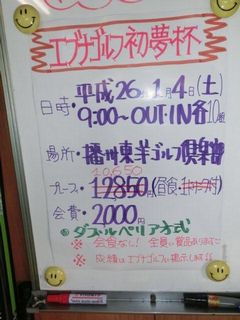 エブナゴルフ初夢杯
日時・平成26.1.4(土)
9:00〜OUT・IN各10組
場所・播州東洋ゴルフ倶楽部
10,650
プレーフィ 12,850(昼食・
会費・2,000円
◎ダブルペリア方式
※ 会食なし! 全員に賞品あります
※ 成績はエブナゴルフに掲示します!!